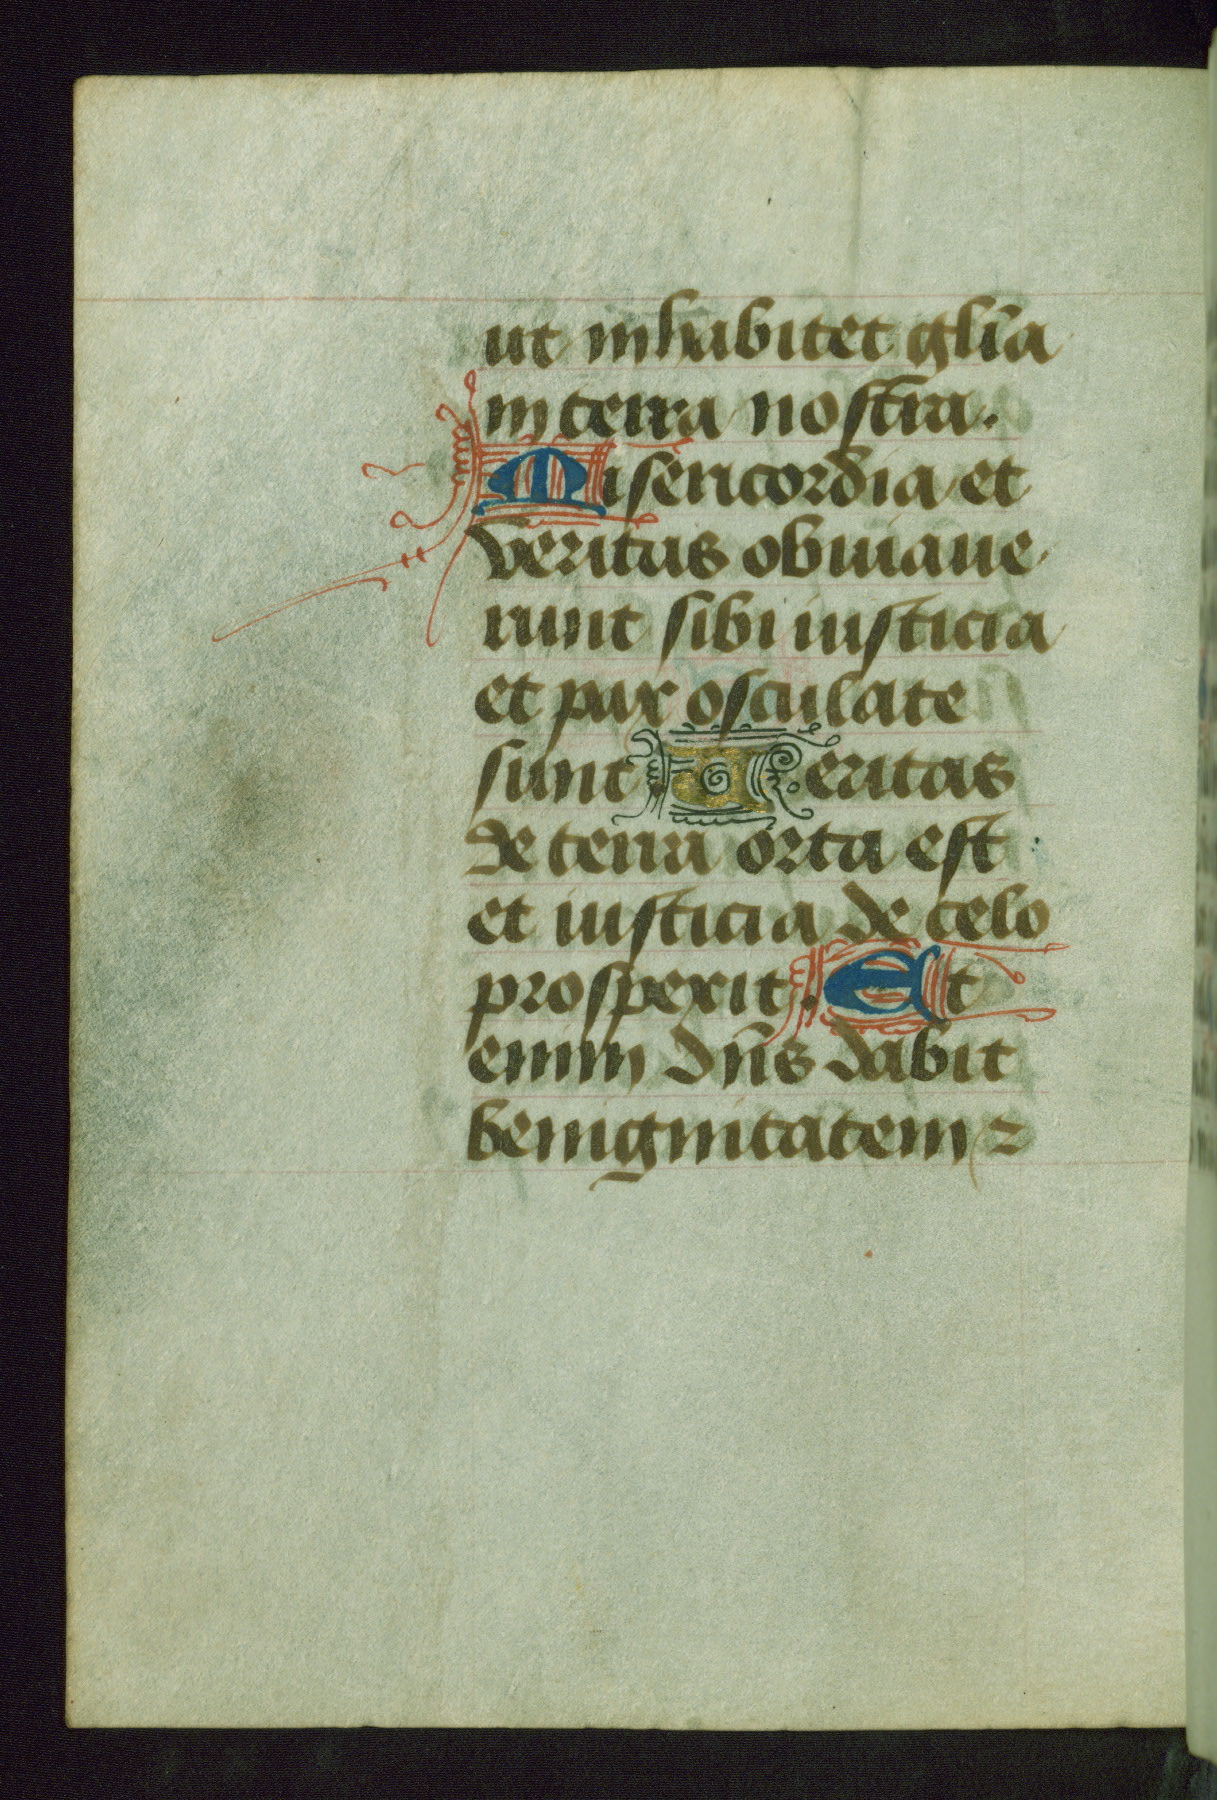 ut inhabitet gl̄ia
in terra nostra.
Misericordia et
veritas obuiaue
runt sibi iusticia
et pax osculate
sunt Veritas
de terra orta est
et iusticia de celo
prospexit. Et
enim dn̄s dabit
benignitatem ꝛ